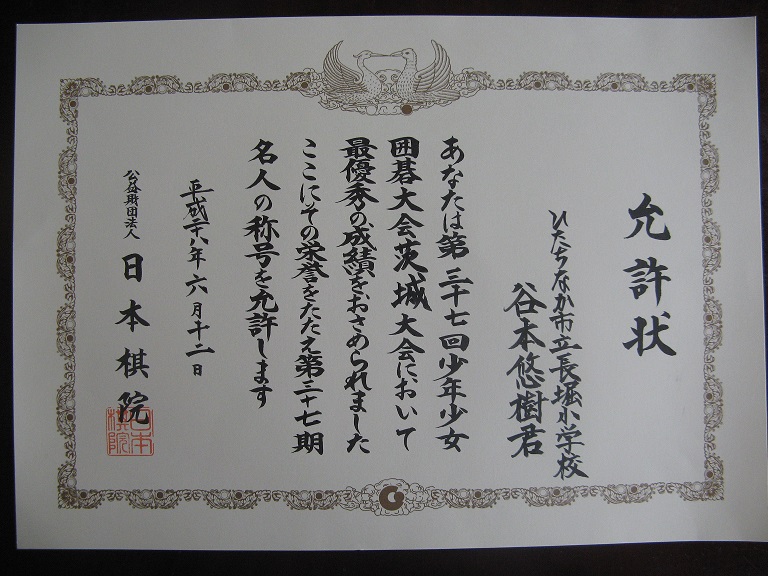 允許状
ひたちなか市立長堀小学校
谷本悠樹君
あなたは第三十七回少年少女
囲碁大会茨城大会において
最優秀の成績をおさめられました
ここにその栄誉をたたえ第三十七期
名人の称号を允許します
平成二十八年六月十二日
公益財団法人
日本棋院
日本棋院